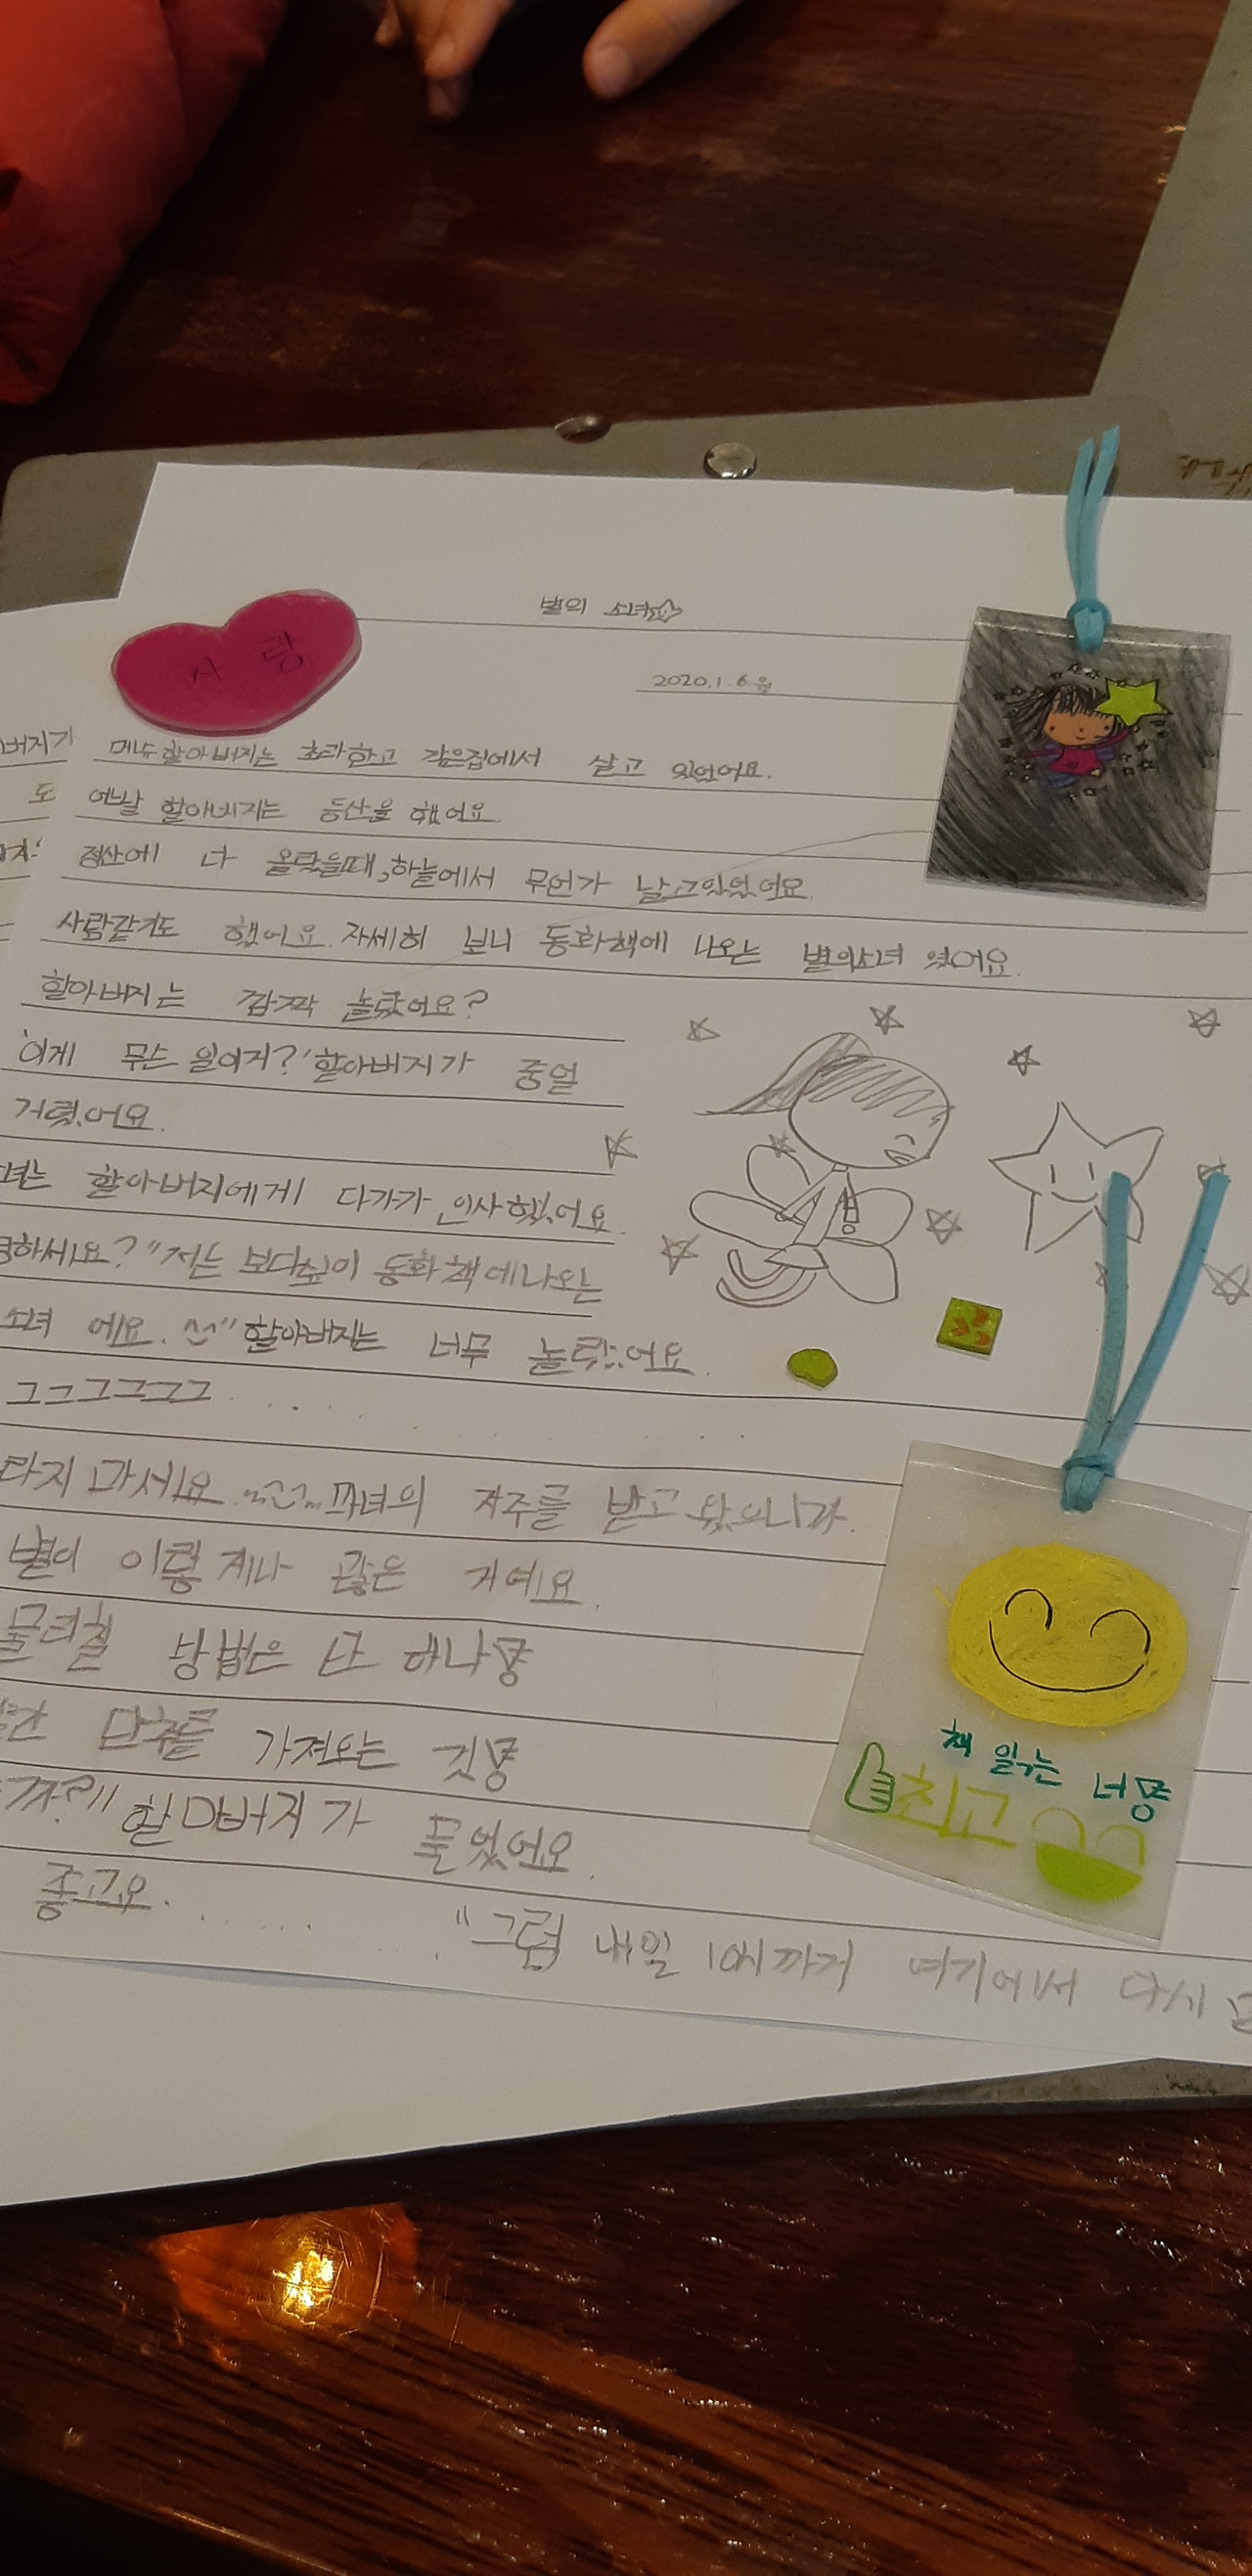 별의 소녀☆
사랑
2020.1.6.월
메슈할아버지는 초라한고 작은집에서 살고 있었어요.
옛날 할아버지는 등산을 했어요.
정산에 다 올랐을때,하늘에서 무언가 날고있었어요.
사람같기도 했어요. 자세히 보니 동화책에 나오는 별의소녀 였어요.
할아버지는 깜짝 놀랐어요?
'이게 무슨 일이거?'할아버지가 중얼
거렸어요.
녀는 할아버지에게 다가가 인사했어요.
하세요?" "저는 보다싶이 동화책에나오는
소녀 에요. ^^" 할아버지는 너무 놀랐어요
그그그그그그.......
라지 마세요. 마녀의 저주를 받고 왔으니까.
별이 이렇게나 많은 거예요.
물리칠 방법은 단 하나!
단추를 가져오는 것!
할아버지가 물었어요.
좋고요....... "그럼 내일 10시까지 여기에서 다시
책 읽는 너!
최고
버지기
도